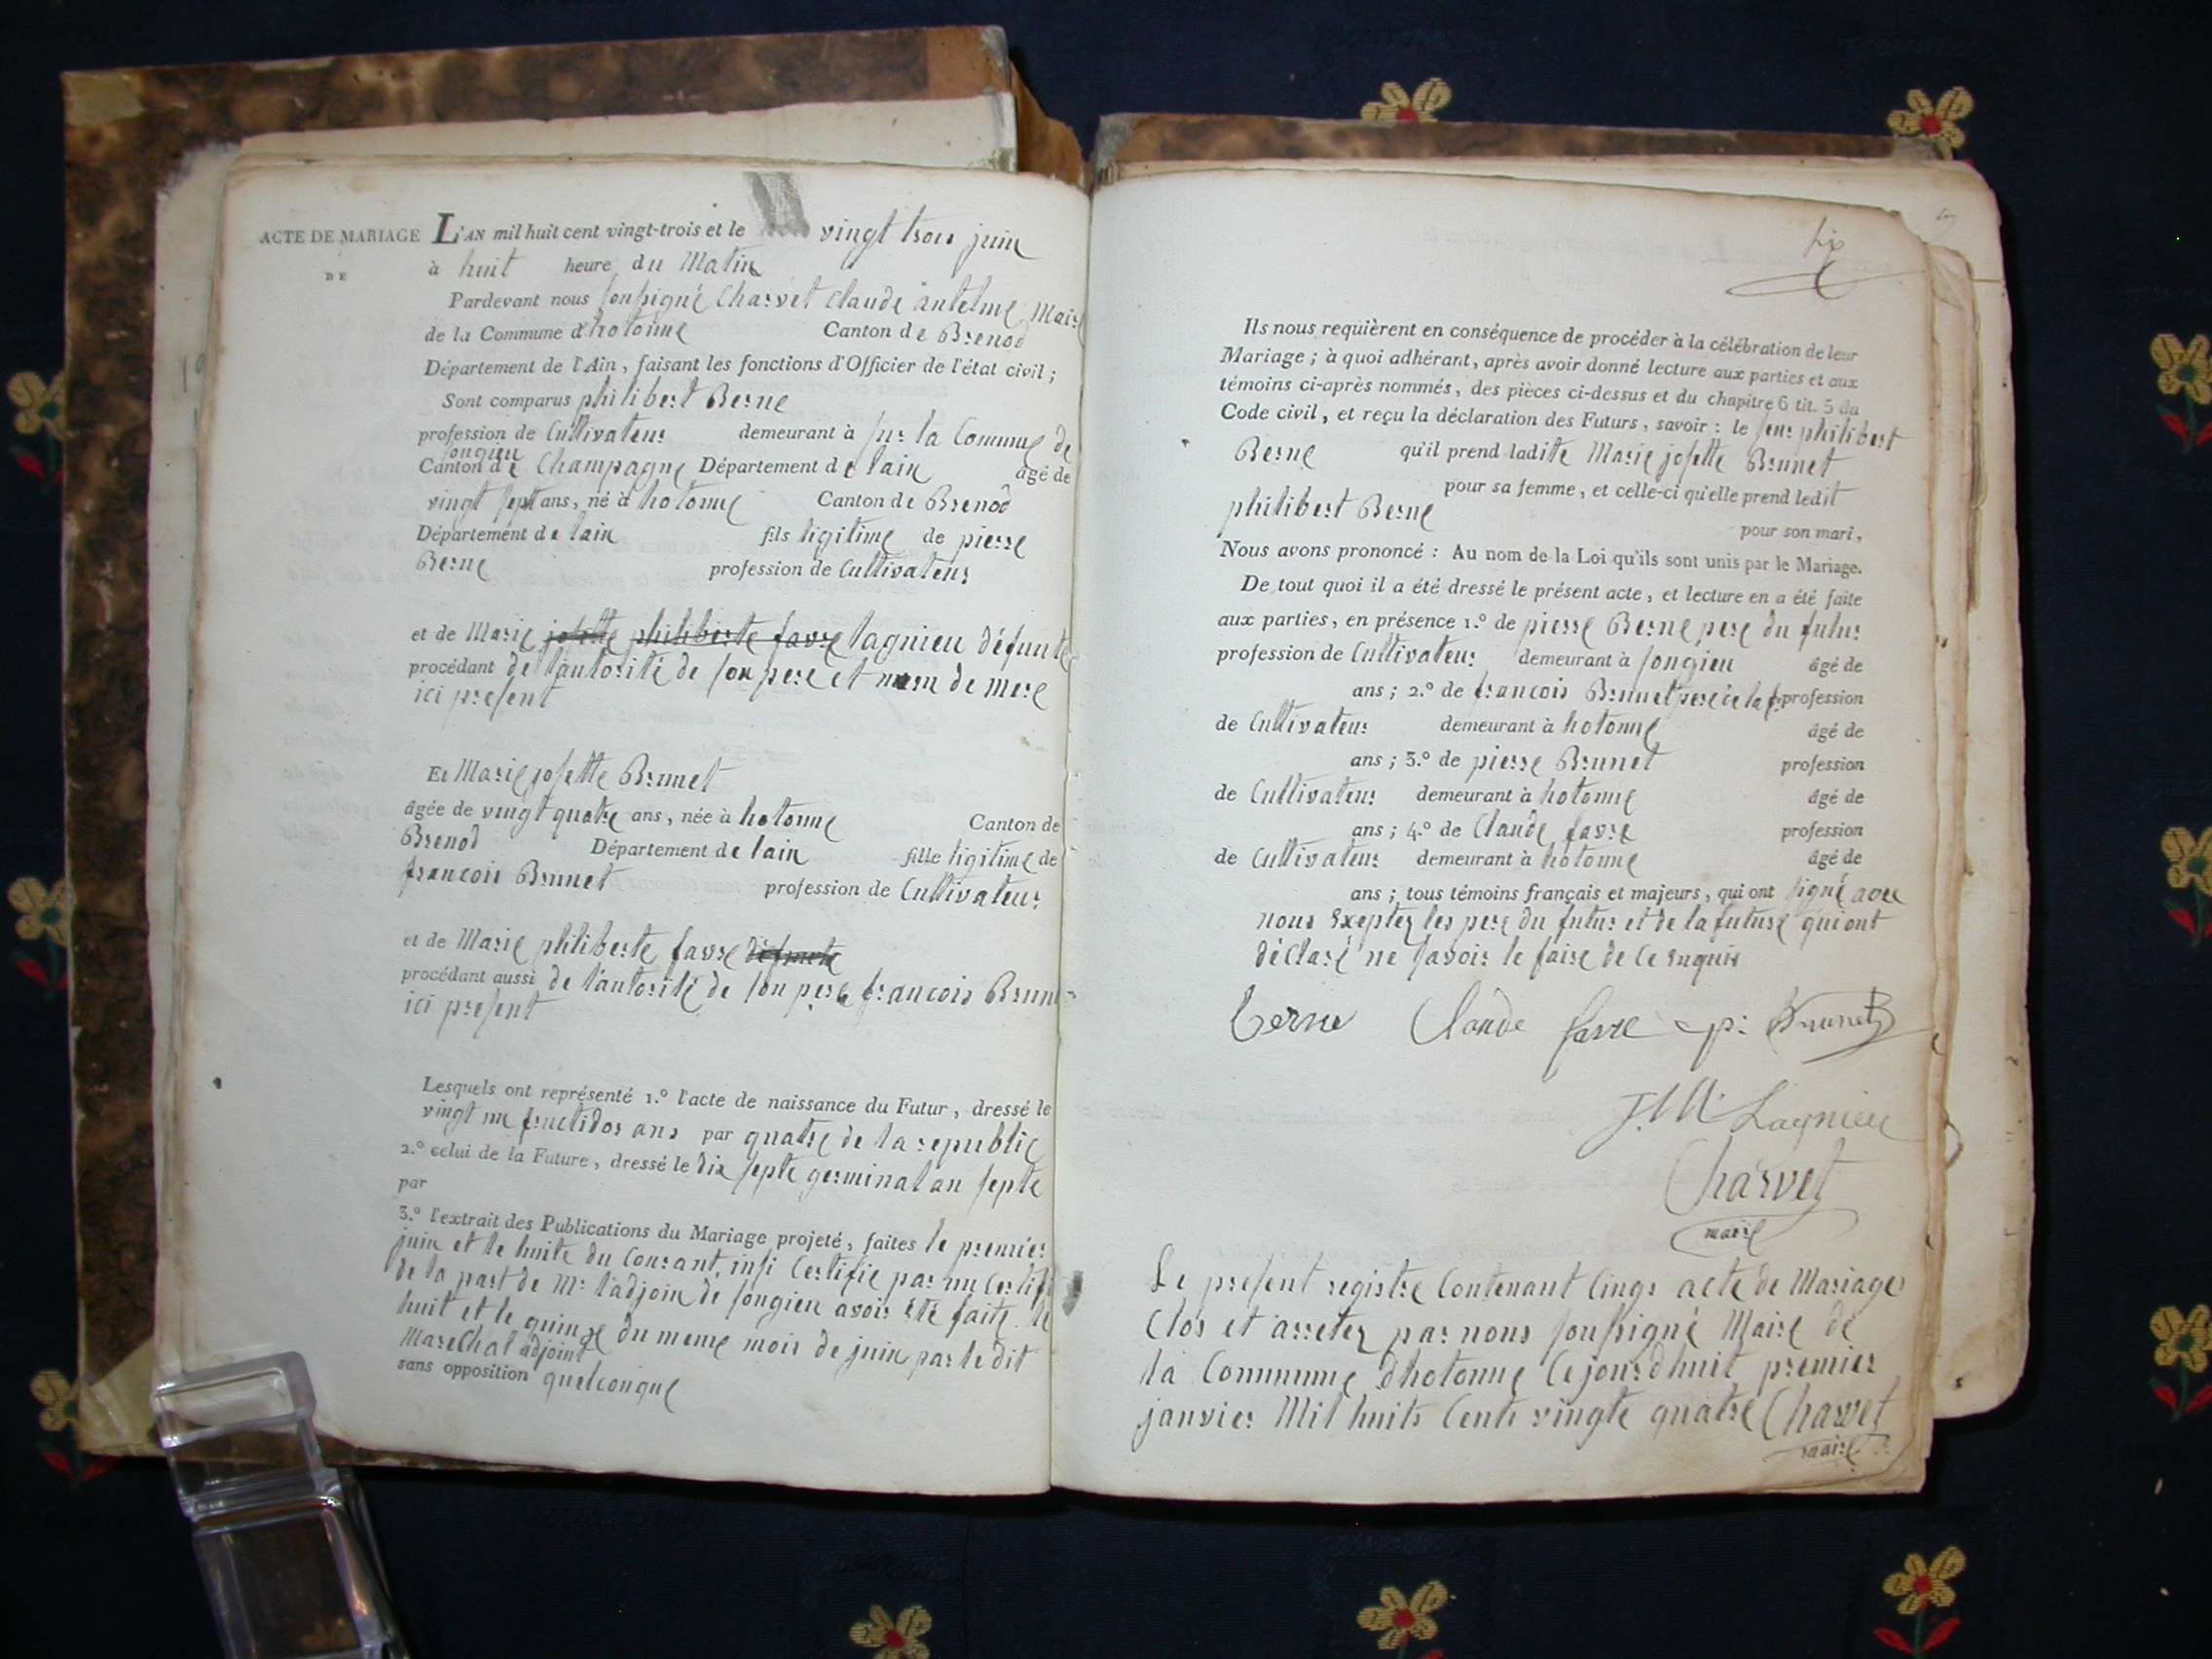 ACTE DE MARIAGE
DE
L'AN mil huit cent vingt-trois et le vingt trois juin
à huit heure du Matin
Pardevant nous soussigné Charvet Claude antelme Maire
de la Commune d'hotonne Canton de Brenod
Département de l'Ain, faisant les fonctions d'Officier de l'état civil;
Sont comparus philibert Berne
profession de Cultivateur demeurant à sur la Commune de
songieu
Canton de Champagne Département de lain âgé de
vingt sept ans, né à hotonne Canton de Brenod
Département de lain fils ligitime de pierre
Berne profession de Cultivateur
et de Marie josette philiberte favre lagnieu défunte
procédant de l'autorité de son pere et de mere
ici present
Et Marie josette Brunet
âgée de vingt quatre ans, née à hotonne Canton de
Brenod Département de lain fille ligitime de
francois Brunet profession de Cultivateur
et de Marie philiberte favre défunte
procédant aussi de l'autorité de son pere francois Brunet
ici present
Lesquels ont représenté 1.º l'acte de naissance du Futur, dressé le
vingt un fructidor ans par quatre de la republic
2.º celui de la Future, dressé le dix septe germinal an septe
par
3.º l'extrait des Publications du Mariage projeté, faites le premier
juin et le huite du Courant, insi Certifie par un Certifi
de la part de Mr l'adjoin de songieu avoir été faite le
huit et le quinze du meme mois de juin par le dit
Marechal adjoint
sans opposition quelconque
six
Ils nous requièrent en conséquence de procéder à la célébration de leur
Mariage; à quoi adhérant, après avoir donné lecture aux parties et aux
témoins ci-après nommés, des pièces ci-dessus et du chapitre 6 tit. 5 du
Code civil, et reçu la déclaration des Futurs, savoir: le sieur philibert
Berne qu'il prend ladite Marie josette Brunet
pour sa femme, et celle-ci qu'elle prend ledit
philibert Berne
pour son mari,
Nous avons prononcé: Au nom de la Loi qu'ils sont unis par le Mariage.
De tout quoi il a été dressé le présent acte, et lecture en a été faite
aux parties, en présence 1.º de pierre Berne pere du futur
profession de Cultivateur demeurant à songieu âgé de
ans; 2.º de francois Brunet pere de la f. profession
de Cultivateur demeurant à hotonne âgé de
ans; 3.º de pierre Brunet profession
de Cultivateur demeurant à hotonne âgé de
ans; 4.º de Claude favre profession
de Cultivateur demeurant à hotonne âgé de
ans; tous témoins français et majeurs, qui ont signé avec
nous Exeptez les pere du futur et de la future qui ont
déclaré ne savoir le faire de ce Enquis
berne Claude favre p: Brunet
J. M. Lagnieu
Charvet
maire
Le present registre Contenant Cinqs acte de Mariage
Clos et arretez par nous soussigné Maire de
la Commune dhotonne Cejourdhuit premier
janvier Mil huits Cents vingte quatre Charvet
maire